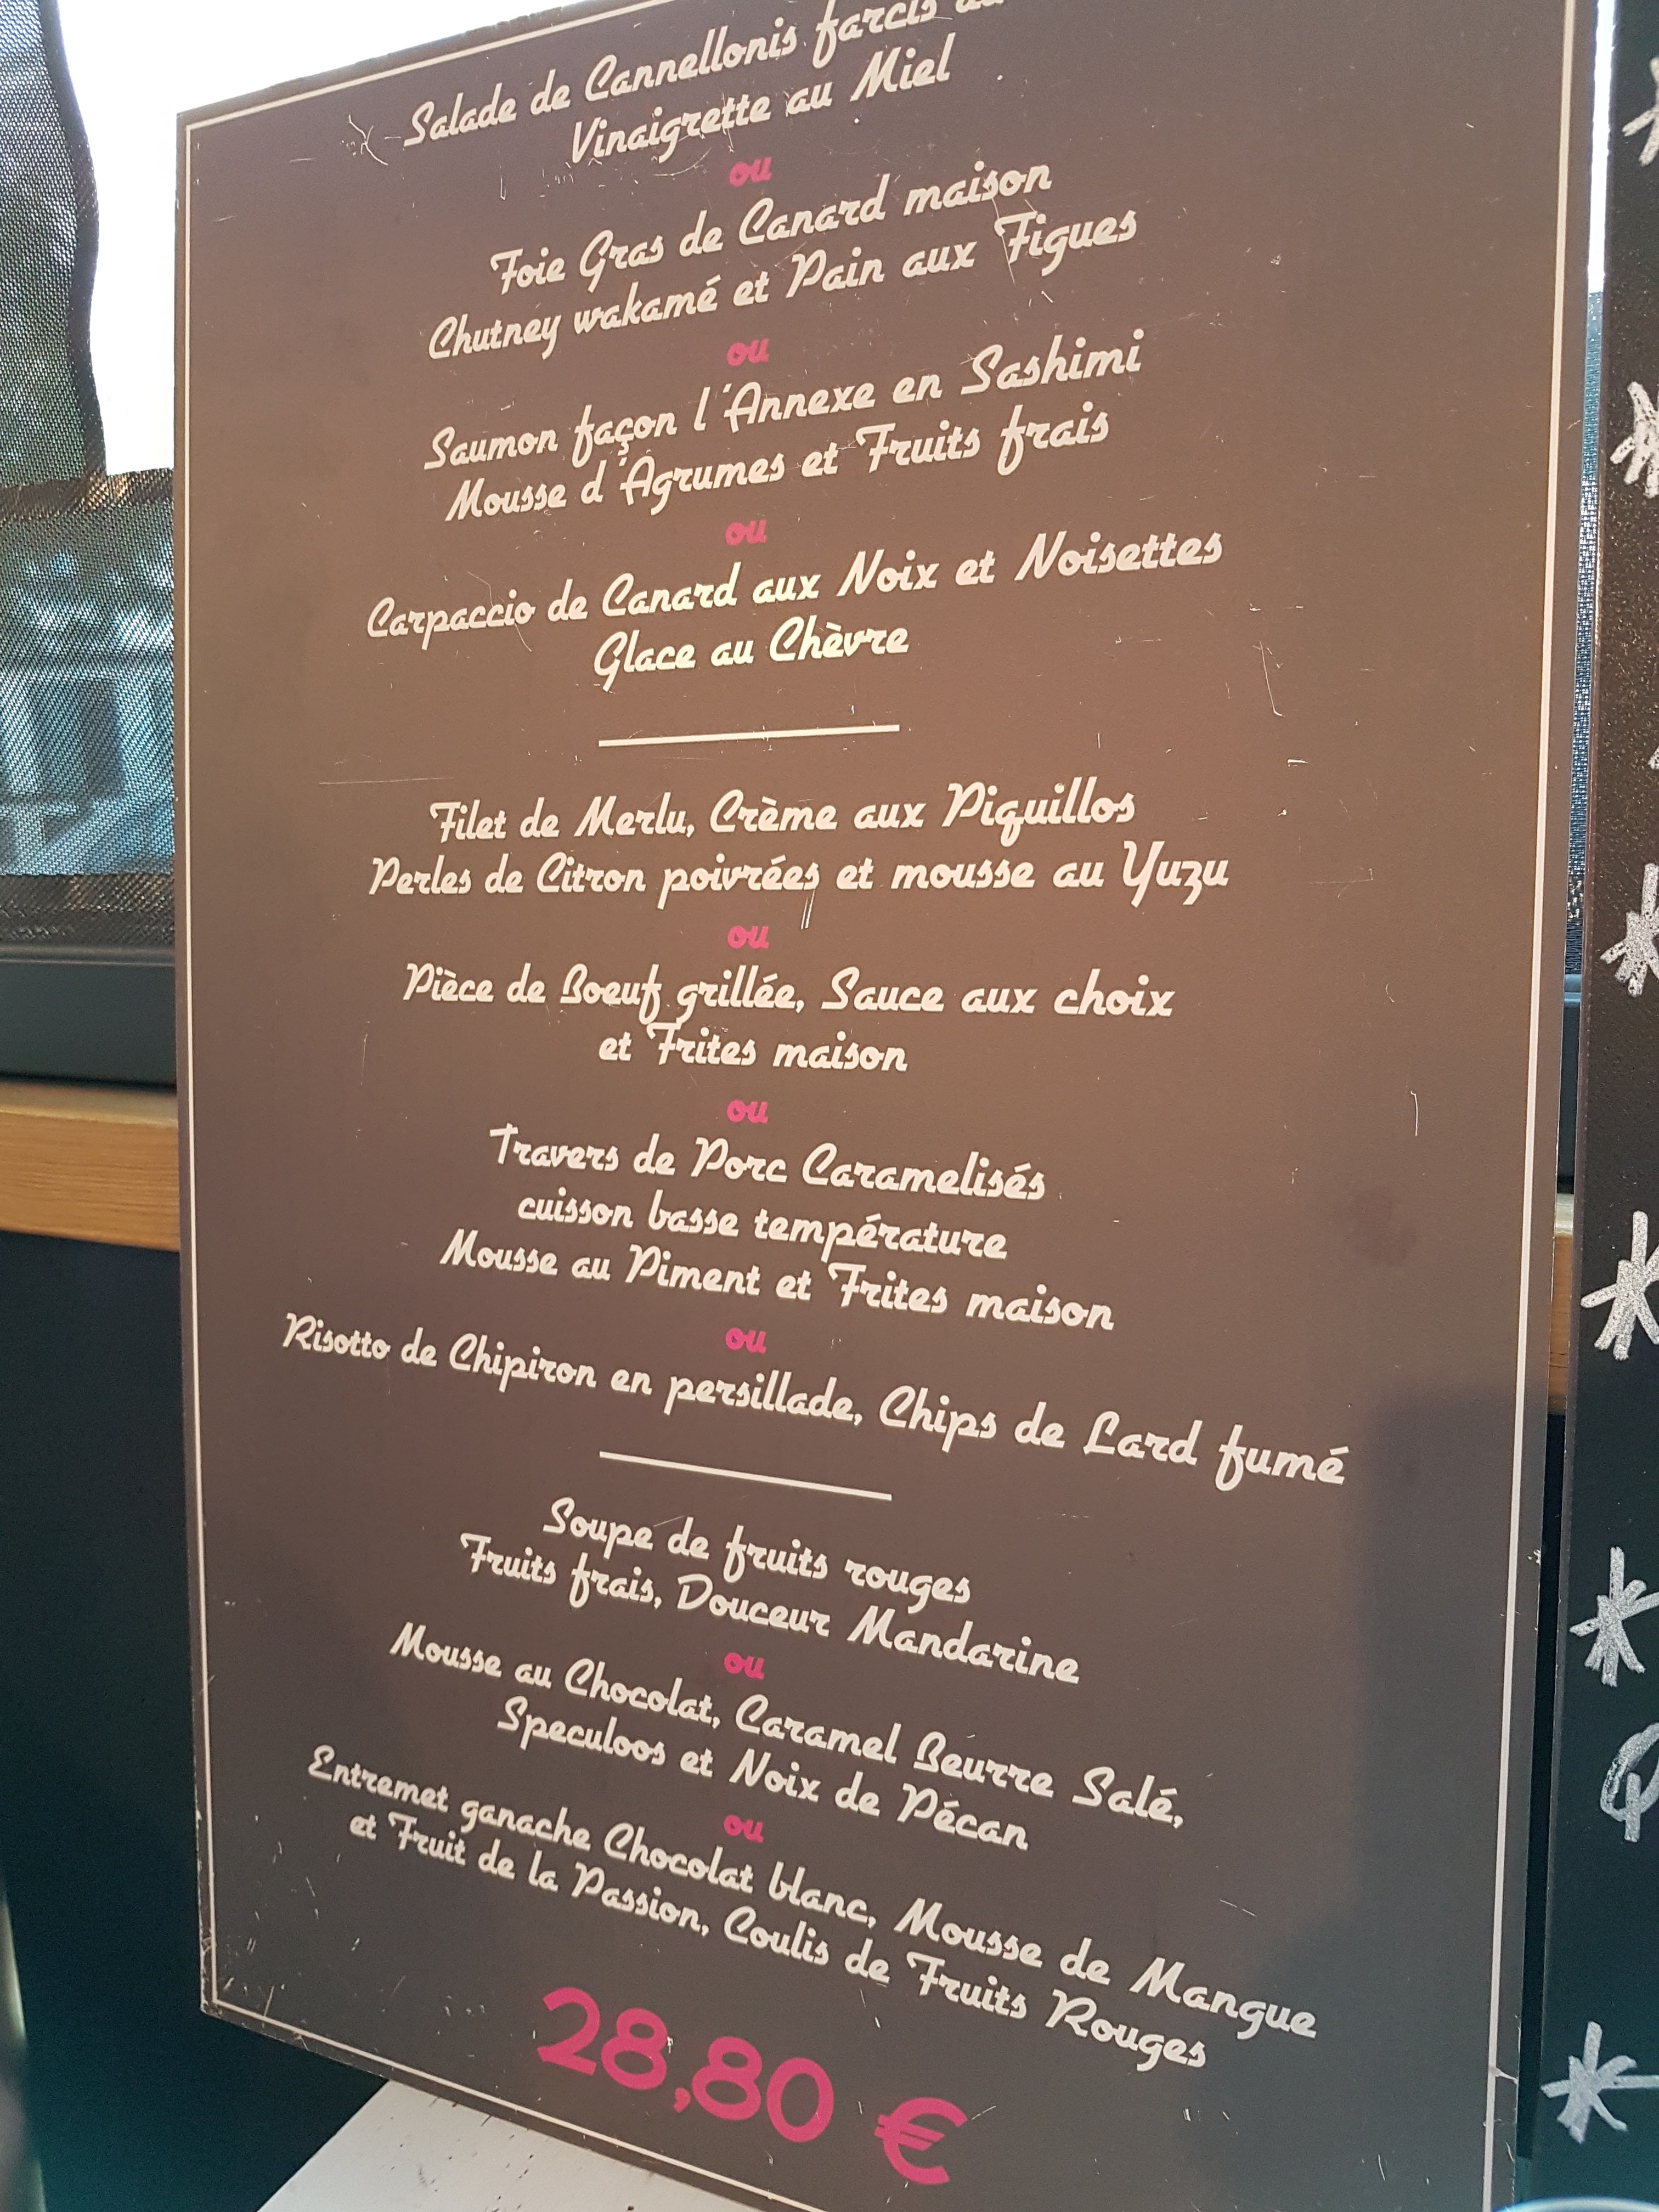 Salade de Cannellonis farcis
Vinaigrette au Miel
ou
Foie Gras de Canard maison
Chutney wakamé et Pain aux Figues
ou
Saumon façon l'Annexe en Sashimi
Mousse d'Agrumes et Fruits frais
ou
Carpaccio de Canard aux Noix et Noisettes
Glace au Chèvre
Filet de Merlu, Crème aux Piquillos
Perles de Citron poivrées et mousse au Yuzu
ou
Pièce de Boeuf grillée, Sauce aux choix
et Frites maison
ou
Travers de Porc Caramelisés
cuisson basse température
Mousse au Piment et Frites maison
ou
Risotto de Chipiron en persillade, Chips de Lard fumé
Soupe de fruits rouges
Fruits frais, Douceur Mandarine
ou
Mousse au Chocolat, Caramel Beurre Salé,
Speculoos et Noix de Pécan
ou
Entremet ganache Chocolat blanc, Mousse de Mangue
et Fruit de la Passion, Coulis de Fruits Rouges
28,80 €